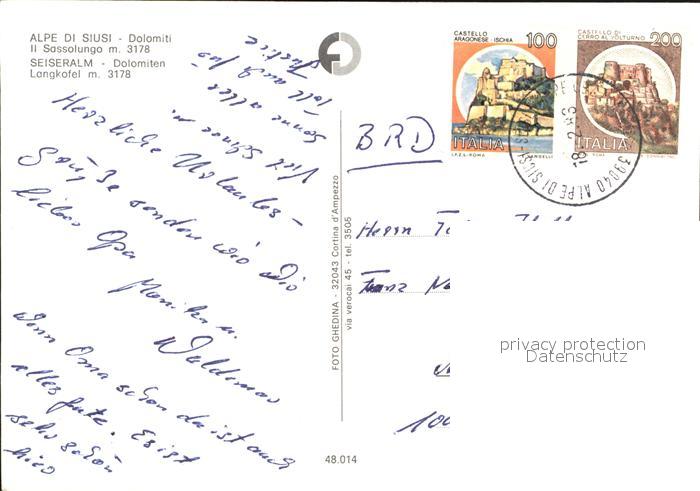 ALPE DI SIUSI - Dolomiti
Il Sassolungo m. 3178
SEISERALM - Dolomiten
Langkofel m. 3178
Herzliche Urlaubs-
Grüße senden wir Dir
lieber Opa
Monika u.
Waldemar
Wenn Oma schon da ist auch
alles gute. Es ist
sehr schön
hier
Viel Schnee u.
Sonne aller
tolle
FOTO GHEDINA - 32043 Cortina d'Ampezzo
via verocai 45 - tel. 3505
48.014
CASTELLO
ARAGONESE - ISCHIA
100
ITALIA
I.P.Z.S. - ROMA
CASTELLO DI
CERRO AL VOLTURNO
200
ITALIA
39040 ALPE DI SIUSI
BRD
Herrn
Franz
privacy protection
Datenschutz